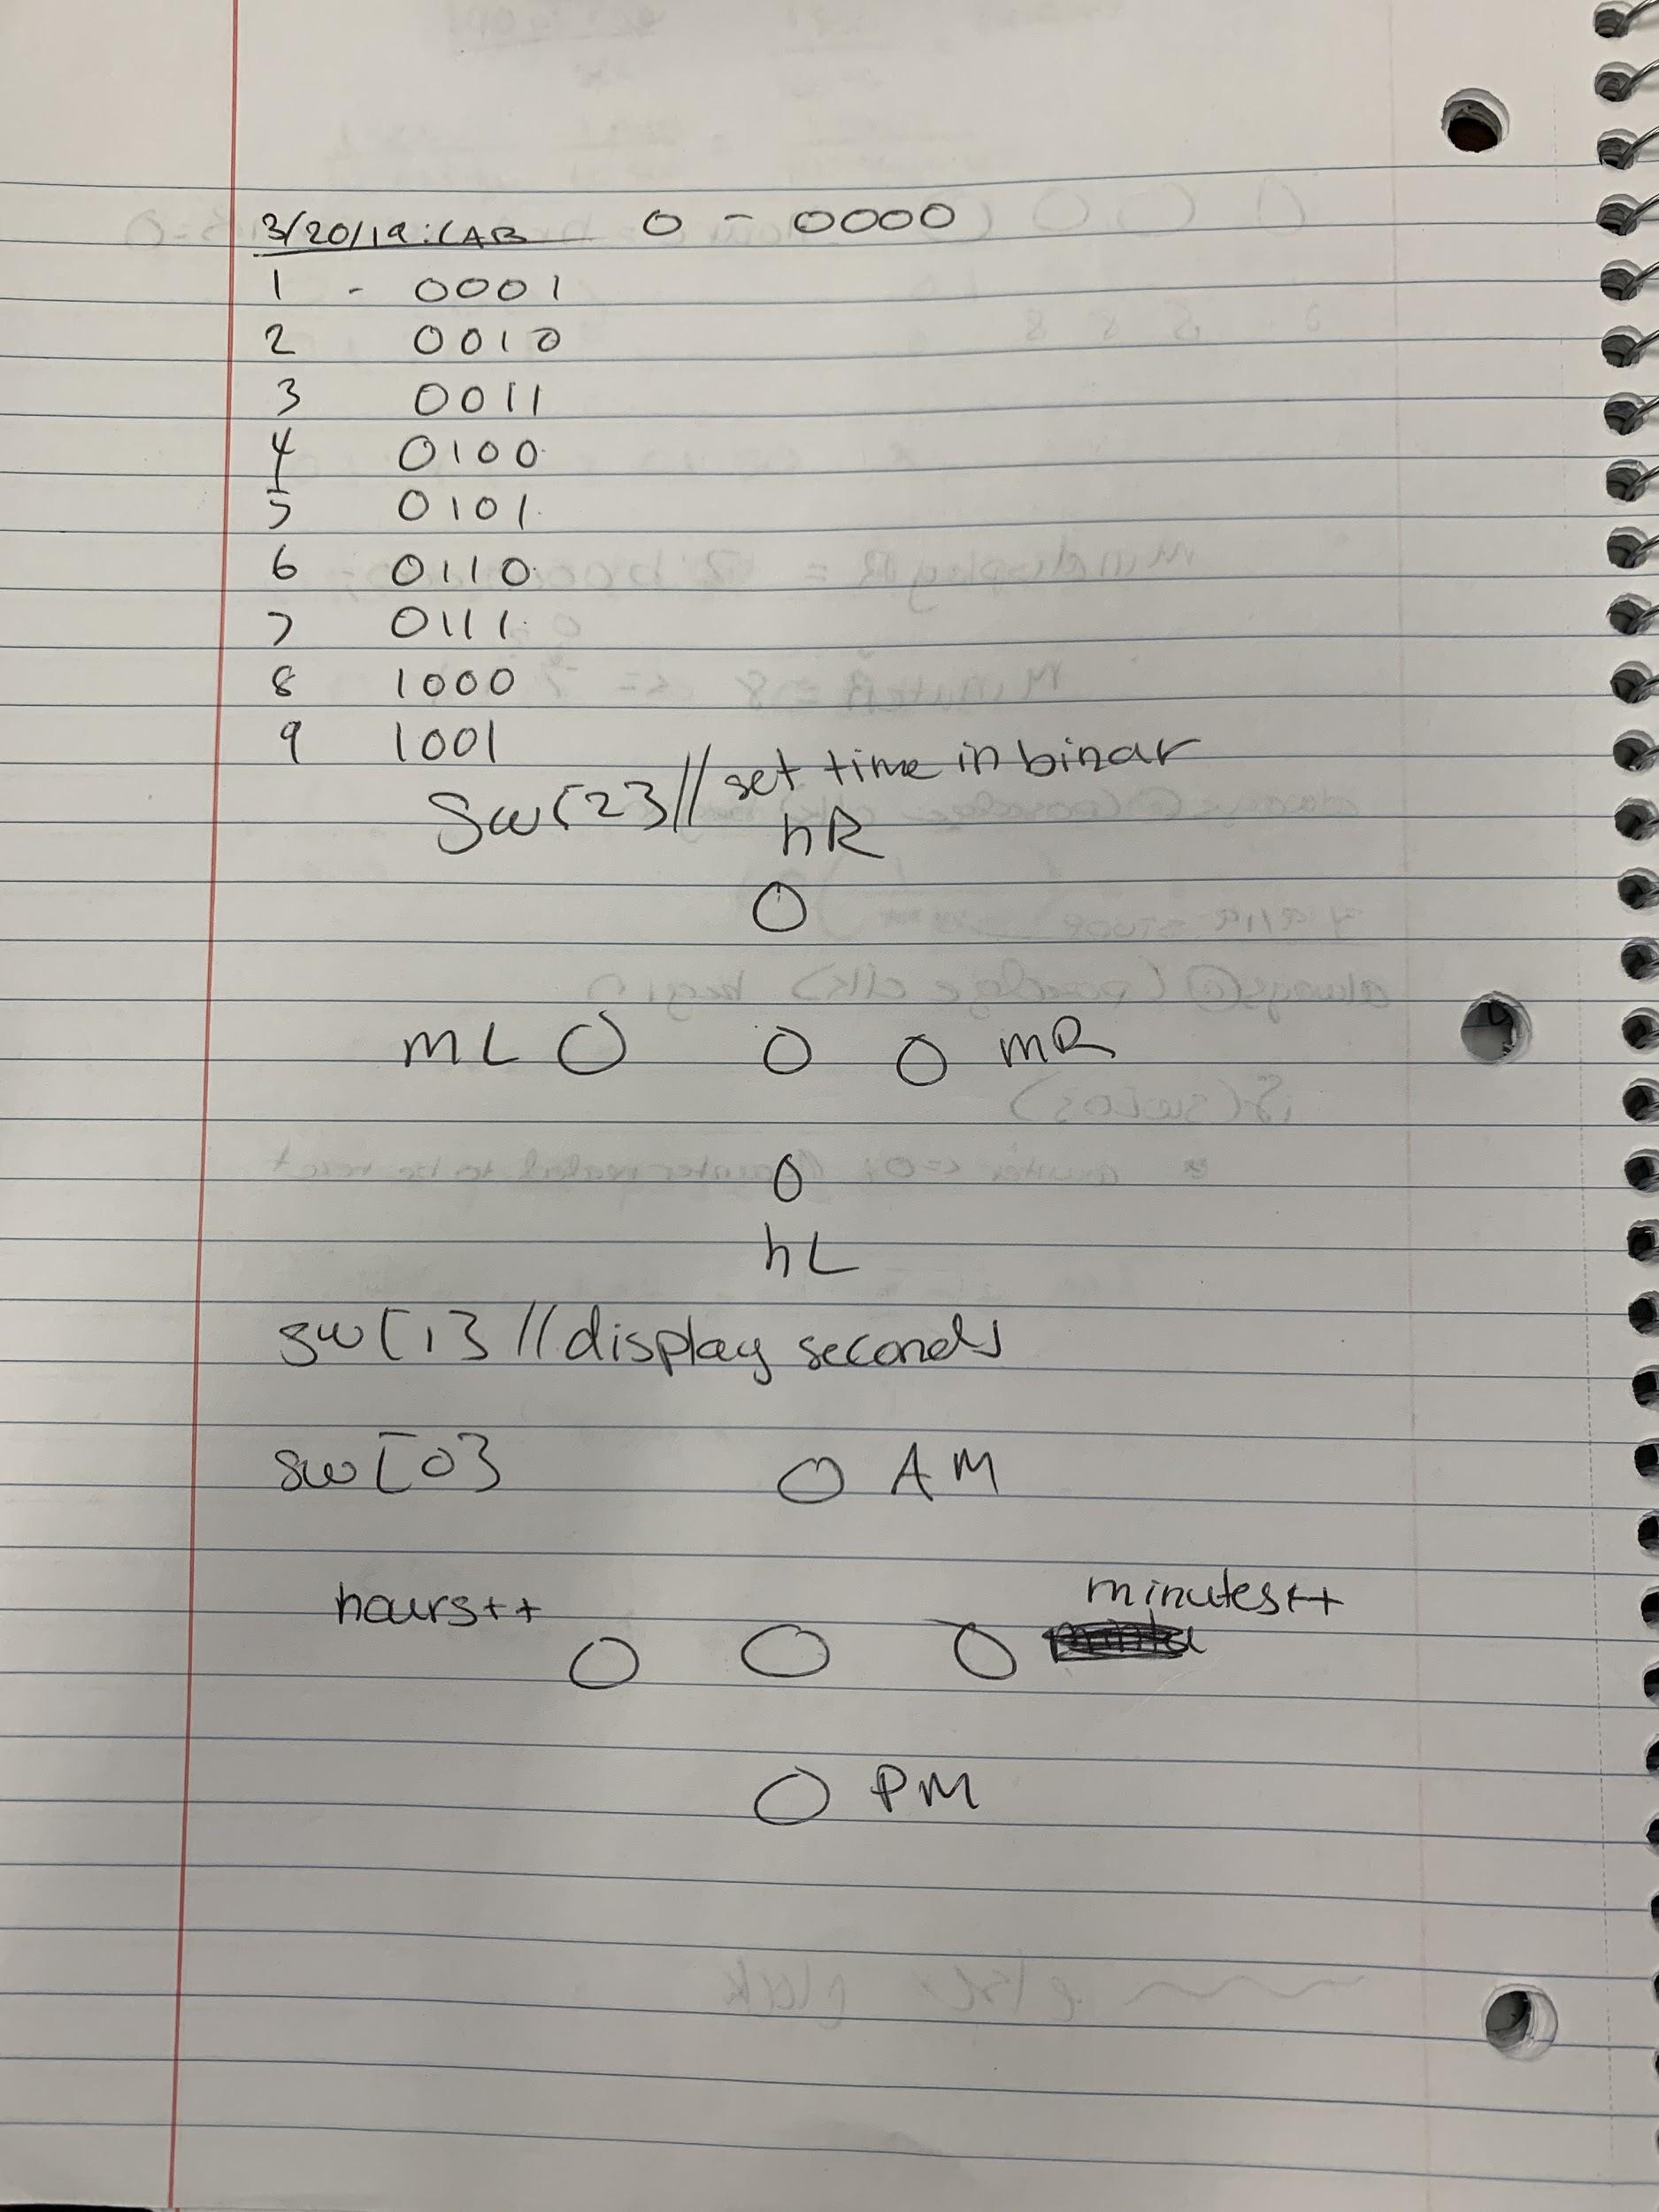 3/20/19: LAB 0 - 0000
1 - 0001
2 0010
3 0011
4 0100
5 0101
6 0110
7 0111
8 1000
9 1001
sw[2] // set time in binar
hR
O
mL O O O mR
O
hL
sw[1] // display seconds
sw[0] O AM
hours++ minutes++
O O O
O PM